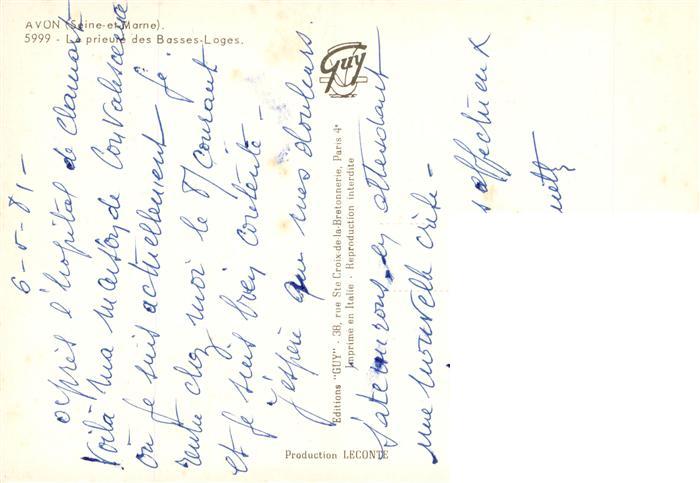 AVON (Seine-et-Marne).
5999 - Le prieuré des Basses-Loges.
6-5-81-
après l'hopital de Clamart
Voilà ma maison de Convalescence
où je suis actuellement je
rentre chez moi le 8 Courant
et je suis bien contente -
j'espère que mes douleurs
Guy
Editions "GUY" - 38, rue Ste Croix-de-la-Bretonnerie, Paris 4e
Imprimé en Italie - Reproduction interdite
Production LECONTE
en attendant
une nouvelle crise -
affectueux